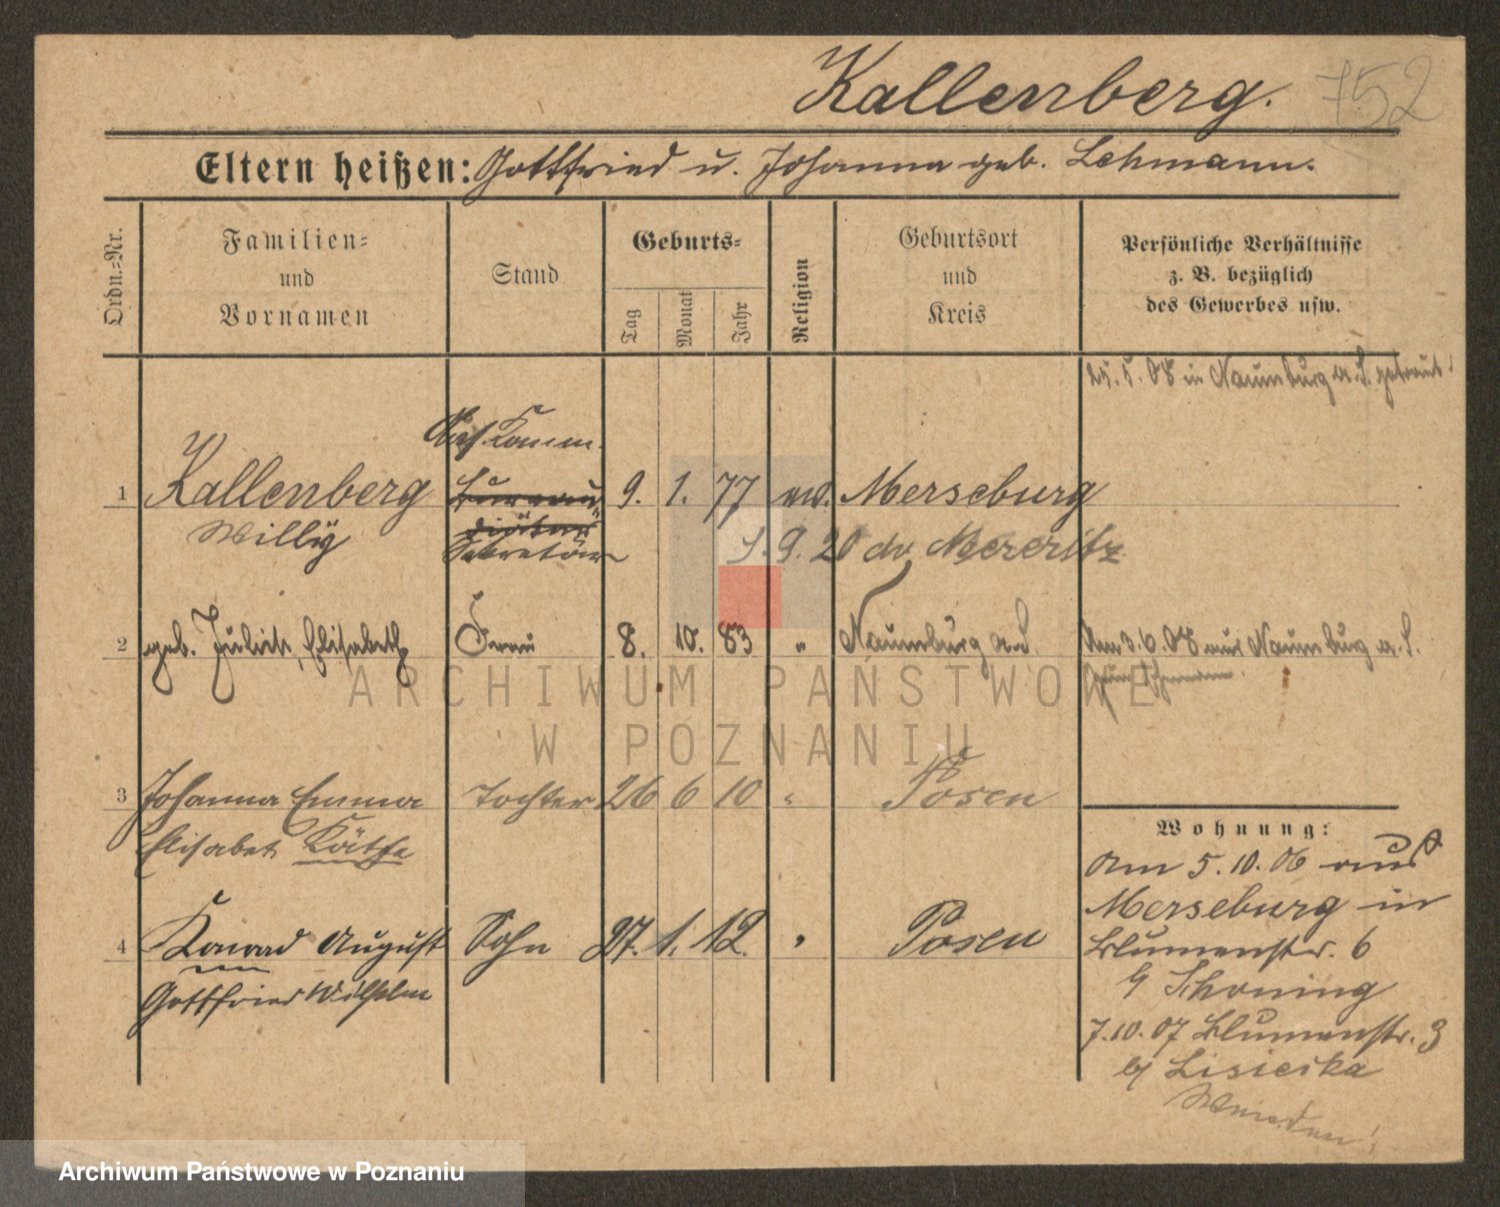 Kallenberg. 752
Eltern heißen: Gottfried u. Johanna geb. Lehmann.
Ordn.-Nr.
Familien-
und
Vornamen
Stand
Geburts-
Tag
Monat
Jahr
Religion
Geburtsort
und
Kreis
Persönliche Verhältnisse
z. B. bezüglich
des Gewerbes usw.
25. 5. 08 in Naumburg a. S. getraut.
1 Kallenberg
Willy
Komm.
Bureau-
diätar
Sekretär
9. 1. 77 ev. Merseburg
1. 9. 20 Meseritz
2 geb. Elisabeth Frau 8. 10. 83 " Naumburg a.S. Am 3. 6. 08 aus Naumburg a. S.
ARCHIWUM PAŃSTWOWE
W POZNANIU
3 Johanna Emma Tochter 26 6 10 " Posen
Elisabet Käthe
4 Konrad August Sohn 27. 1. 12. " Posen
Gottfried Wilhelm
Wohnung:
Am 5. 10. 06 aus
Merseburg in
Blumenstr. 6
b/ Thoning
7. 10. 07 Blumenstr. 3
b/ Lisiecka
Wenden!
Archiwum Państwowe w Poznaniu